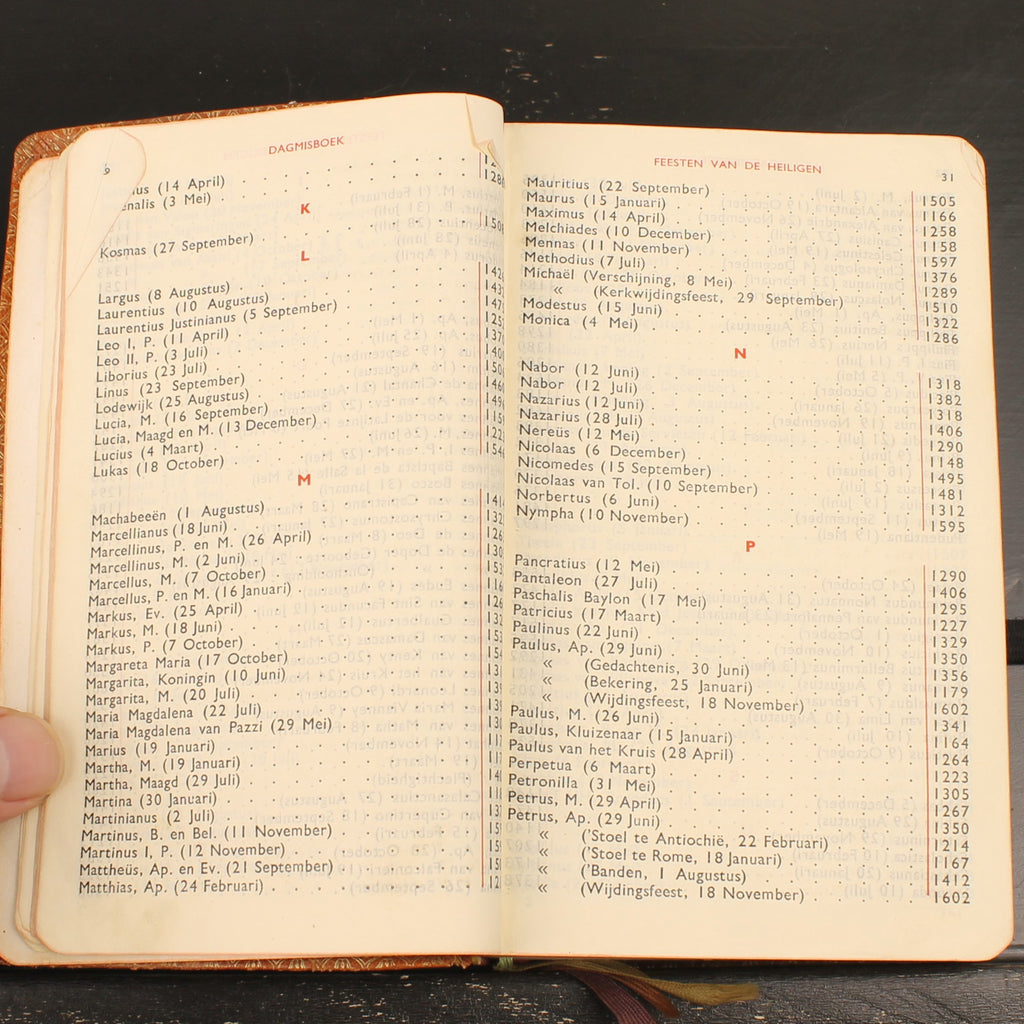 DAGMISBOEK
(14 April)
(3 Mei)
K
Kosmas (27 September)
L
Largus (8 Augustus)
Laurentius (10 Augustus)
Laurentius Justinianus (5 September)
Leo I, P. (11 April)
Leo II, P. (3 Juli)
Liborius (23 Juli)
Linus (23 September)
Lodewijk (25 Augustus)
Lucia, M. (16 September)
Lucia, Maagd en M. (13 December)
Lucius (4 Maart)
Lukas (18 October)
M
Machabeeën (1 Augustus)
Marcellianus (18 Juni)
Marcellinus, P. en M. (26 April)
Marcellinus, M. (2 Juni)
Marcellus, M. (7 October)
Marcellus, P. en M. (16 Januari)
Markus, Ev. (25 April)
Markus, M. (18 Juni)
Markus, P. (7 October)
Margareta Maria (17 October)
Margarita, Koningin (10 Juni)
Margarita, M. (20 Juli)
Maria Magdalena (22 Juli)
Maria Magdalena van Pazzi (29 Mei)
Marius (19 Januari)
Martha, M. (19 Januari)
Martha, Maagd (29 Juli)
Martina (30 Januari)
Martinianus (2 Juli)
Martinus, B. en Bel. (11 November)
Martinus I, P. (12 November)
Mattheüs, Ap. en Ev. (21 September)
Matthias, Ap. (24 Februari)
FEESTEN VAN DE HEILIGEN 31
Mauritius (22 September) 1505
Maurus (15 Januari) 1166
Maximus (14 April) 1258
Melchiades (10 December) 1158
Mennas (11 November) 1597
Methodius (7 Juli) 1376
Michaël (Verschijning, 8 Mei) 1289
« (Kerkwijdingsfeest, 29 September) 1510
Modestus (15 Juni) 1322
Monica (4 Mei) 1286
N
Nabor (12 Juni) 1318
Nabor (12 Juli) 1382
Nazarius (12 Juni) 1318
Nazarius (28 Juli) 1406
Nereüs (12 Mei) 1290
Nicolaas (6 December) 1148
Nicomedes (15 September) 1495
Nicolaas van Tol. (10 September) 1481
Norbertus (6 Juni) 1312
Nympha (10 November) 1595
P
Pancratius (12 Mei) 1290
Pantaleon (27 Juli) 1406
Paschalis Baylon (17 Mei) 1295
Patricius (17 Maart) 1227
Paulinus (22 Juni) 1329
Paulus, Ap. (29 Juni) 1350
« (Gedachtenis, 30 Juni) 1356
« (Bekering, 25 Januari) 1179
« (Wijdingsfeest, 18 November) 1602
Paulus, M. (26 Juni) 1341
Paulus, Kluizenaar (15 Januari) 1164
Paulus van het Kruis (28 April) 1264
Perpetua (6 Maart) 1223
Petronilla (31 Mei) 1305
Petrus, M. (29 April) 1267
Petrus, Ap. (29 Juni) 1350
« ('Stoel te Antiochië, 22 Februari) 1214
« ('Stoel te Rome, 18 Januari) 1167
« ('Banden, 1 Augustus) 1412
« (Wijdingsfeest, 18 November) 1602